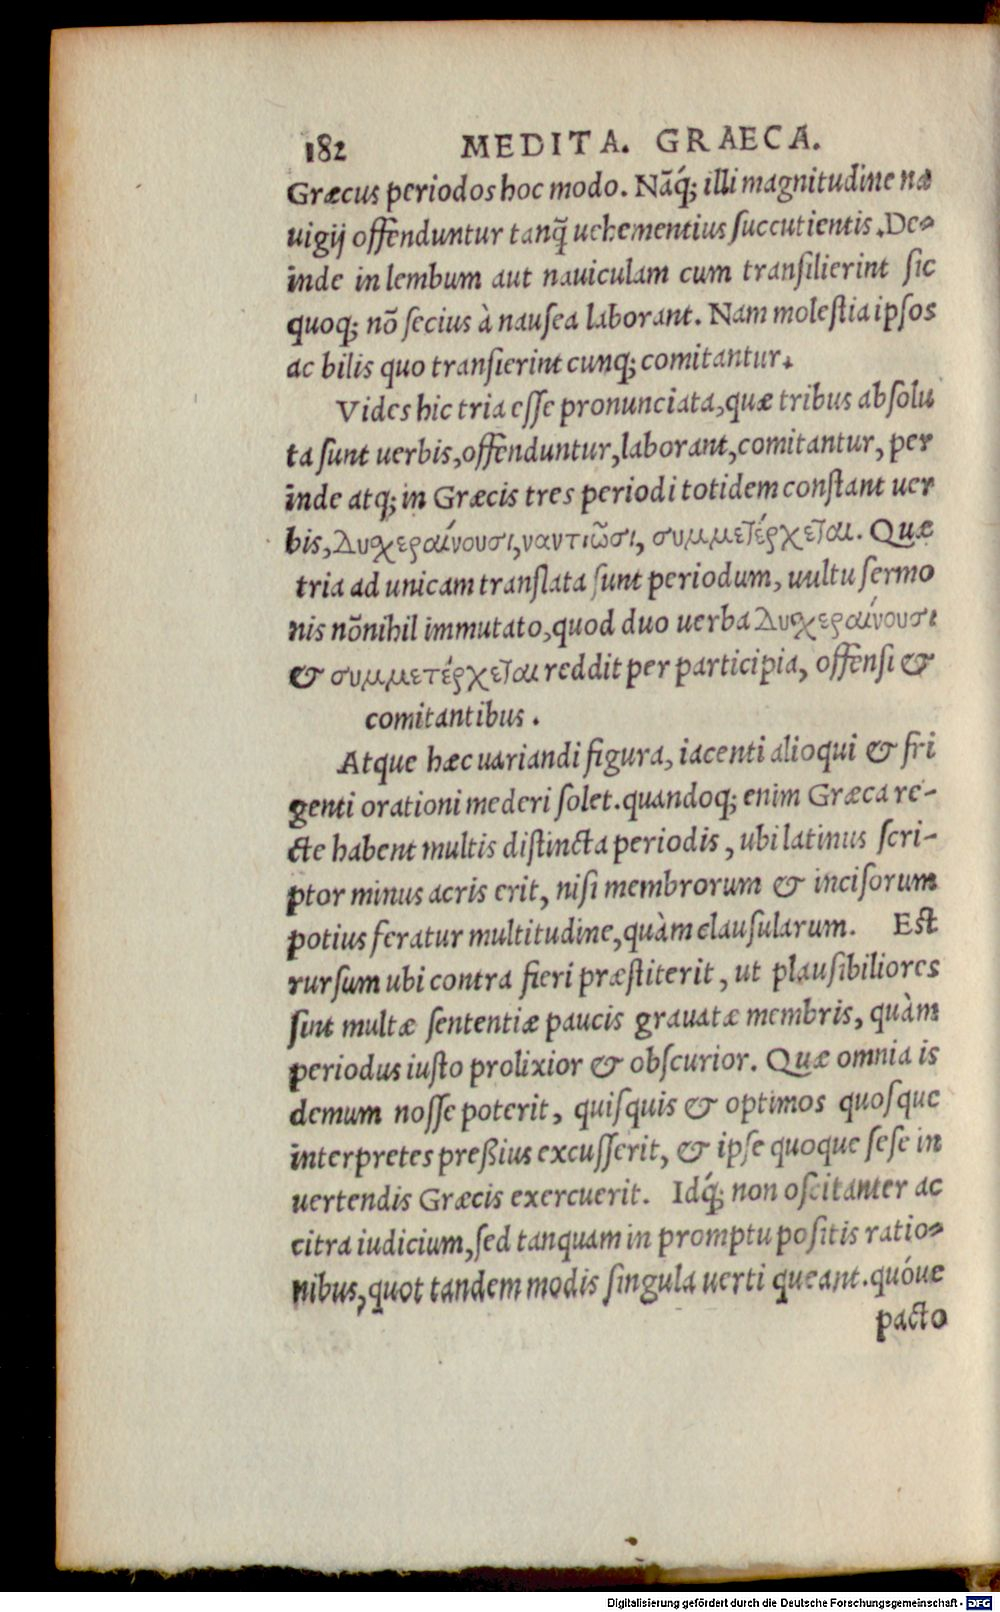 182 MEDITA. GRAECA.
Græcus periodos hoc modo. Nãq́; illi magnitudine na
uigij offenduntur tanq̃ uehementius succutientis. De-
inde in lembum aut nauiculam cum transilierint sic
quoq; nõ secius à nausea laborant. Nam molestia ipsos
ac bilis quo transierint cunq; comitantur.
Vides hic tria esse pronunciata, quæ tribus absolu
ta sunt uerbis, offenduntur, laborant, comitantur, per
inde atq; in Græcis tres periodi totidem constant uer
bis, Δυσχεραίνουσι, ναυτιῶσι, συμμετέρχεται. Quæ
tria ad unicam translata sunt periodum, uultu sermo
nis nõnihil immutato, quod duo uerba Δυσχεραίνουσι
& συμμετέρχεται reddit per participia, offensi &
comitantibus.
Atque hæc uariandi figura, iacenti alioqui & fri
genti orationi mederi solet. quandoq; enim Græca re-
cte habent multis distincta periodis, ubi latinus scri-
ptor minus acris erit, nisi membrorum & incisorum
potius feratur multitudine, quàm clausularum. Est
rursum ubi contra fieri præstiterit, ut plausibiliores
sint multæ sententiæ paucis grauatæ membris, quàm
periodus iusto prolixior & obscurior. Quæ omnia is
demum nosse poterit, quisquis & optimos quosque
interpretes preßius excusserit, & ipse quoque sese in
uertendis Græcis exercuerit. Idq́; non oscitanter ac
citra iudicium, sed tanquam in promptu positis ratio-
nibus, quot tandem modis singula uerti queant. quóue
pacto
Digitalisierung gefördert durch die Deutsche Forschungsgemeinschaft - DFG